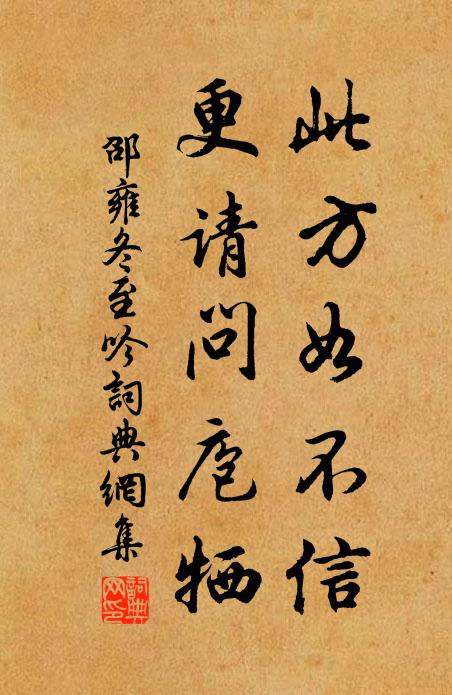 此方如不信
更请问庖牺
邵雍冬至吟詞典網集
詞典网印